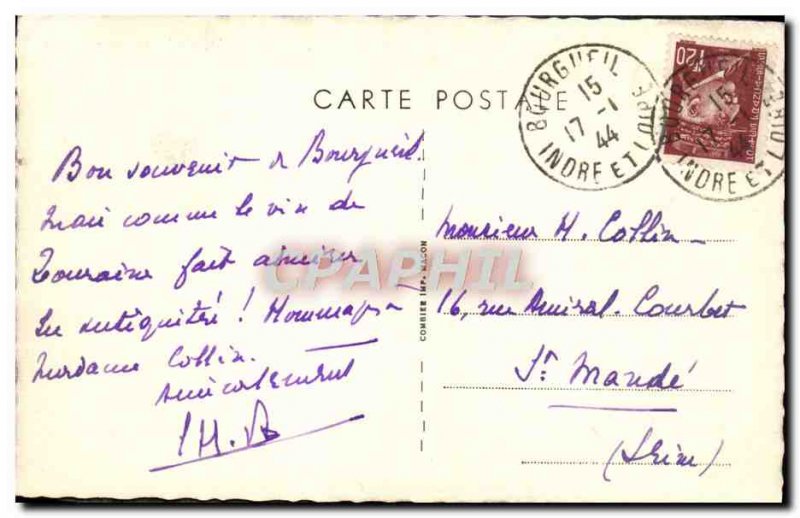 CARTE POSTALE
BOURGUEIL
15
17 -1
44
INDRE ET LOIRE
1F20
Bon souvenir de Bourgueil.
Mais comme le vin de
Touraine fait admirer
les antiquités ! Hommages à
Madame Collin.
Amicalement
Monsieur H. Collin
16, rue Amiral-Courbet
St Mandé
(Seine)
COMBIER IMP. MACON
CPAPHIL